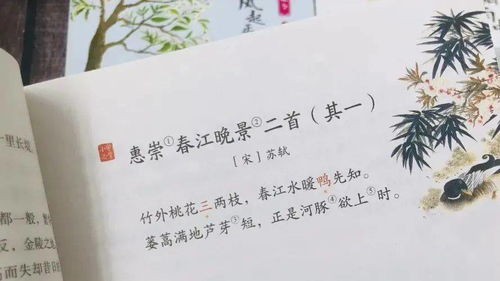 惠崇①春江晚景②二首（其一）
［宋］苏轼
竹外桃花三两枝，春江水暖鸭先知。
蒌蒿满地芦芽③短，正是河豚④欲上⑤时。
十里长堤
都一般，
反，金陵之
而失却昔日
风起